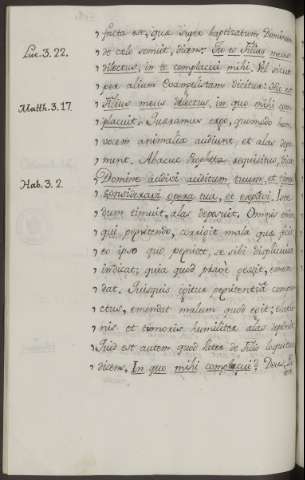 facta est, quæ super baptizatum Dominum
Luc. 3. 22.
de cælo sonuit, dicens: Tu es Filius meus
dilectus, in te complacui mihi. Vel sicut
per alium Evangelistam dicitur: Hic est
Matth. 3. 17.
Filius meus dilectus, in quo mihi com
placuit. Quæramus ergo, quomodo hanc
vocem animalia audiunt, et alas depo
nunt. Abacuc Propheta requisitus, dicat
Hab. 3. 2.
Domine audivi auditum tuum, et timui
consideravi opera tua, et expavi.
dum timuit, alas deposuit. Omnis enim
qui pœnitendo, corrigit mala quæ fecit
eo ipso quo pœnitet, se sibi displicuisse
indicat; quia quod prave gessit, emen
dat. Quisquis igitur pœnitentia compun
ctus, emendat malum quod egit;
nis et timoris humiliter alas deponit
Quid est autem quod Pater de Filio loquitur
dicens, In quo mihi complacui?